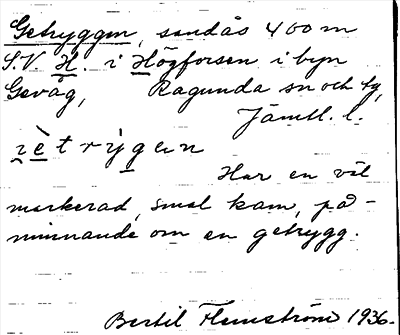 Getryggen, sandås 400 m
S.V H. i Högforsen i byn
Gevåg, Ragunda sn och tg,
Jämtl. l.
Har en väl
markerad, smal kam, på-
minnande om en getrygg.
Bertil Flemström 1936.